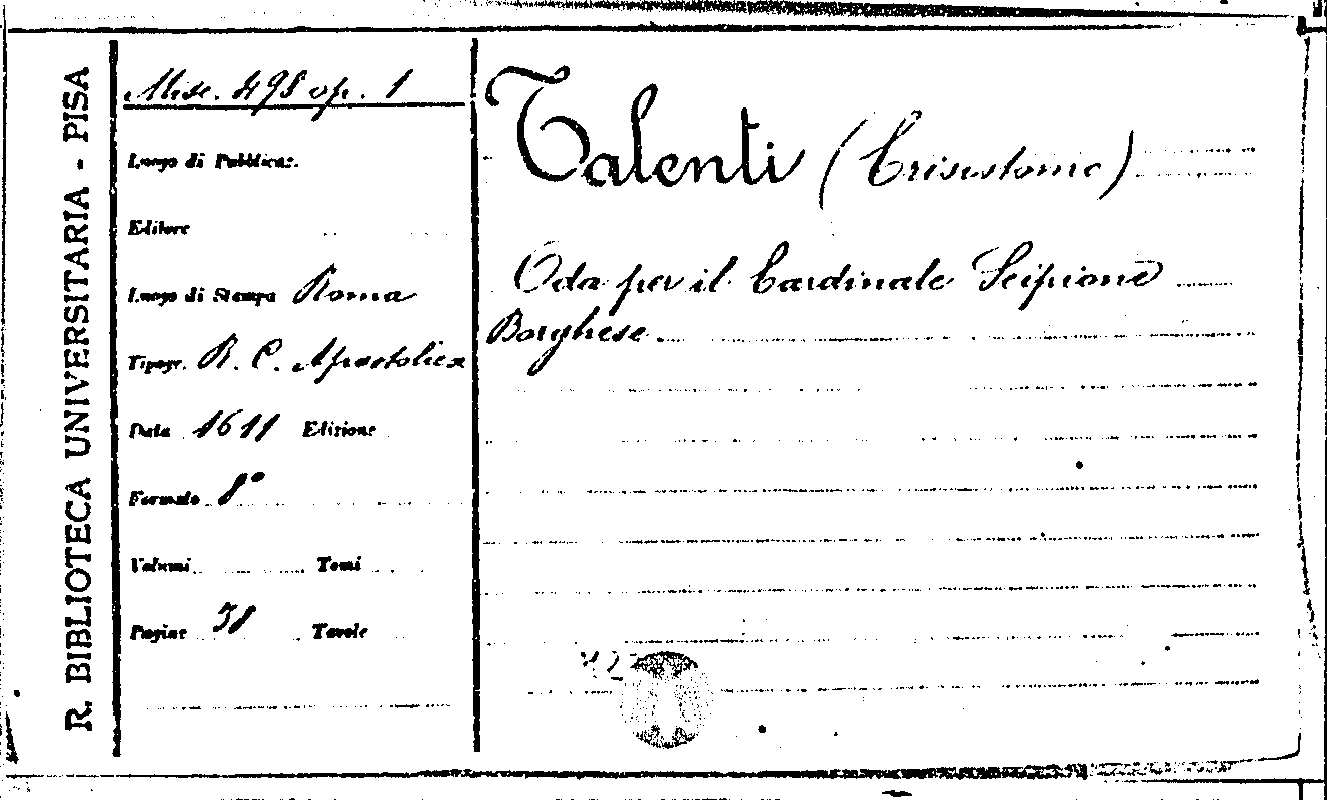 R. BIBLIOTECA UNIVERSITARIA - PISA
Misc. 498 op. 1
Luogo di Pubblicaz.
Editore
Luogo di Stampa Roma
Tipogr. R. C. Apostolica
Data 1611 Edizione
Formato 8°
Volumi Tomi
Pagine 38 Tavole
Talenti (Crisostomo)
Oda per il Cardinale Scipione
Borghese